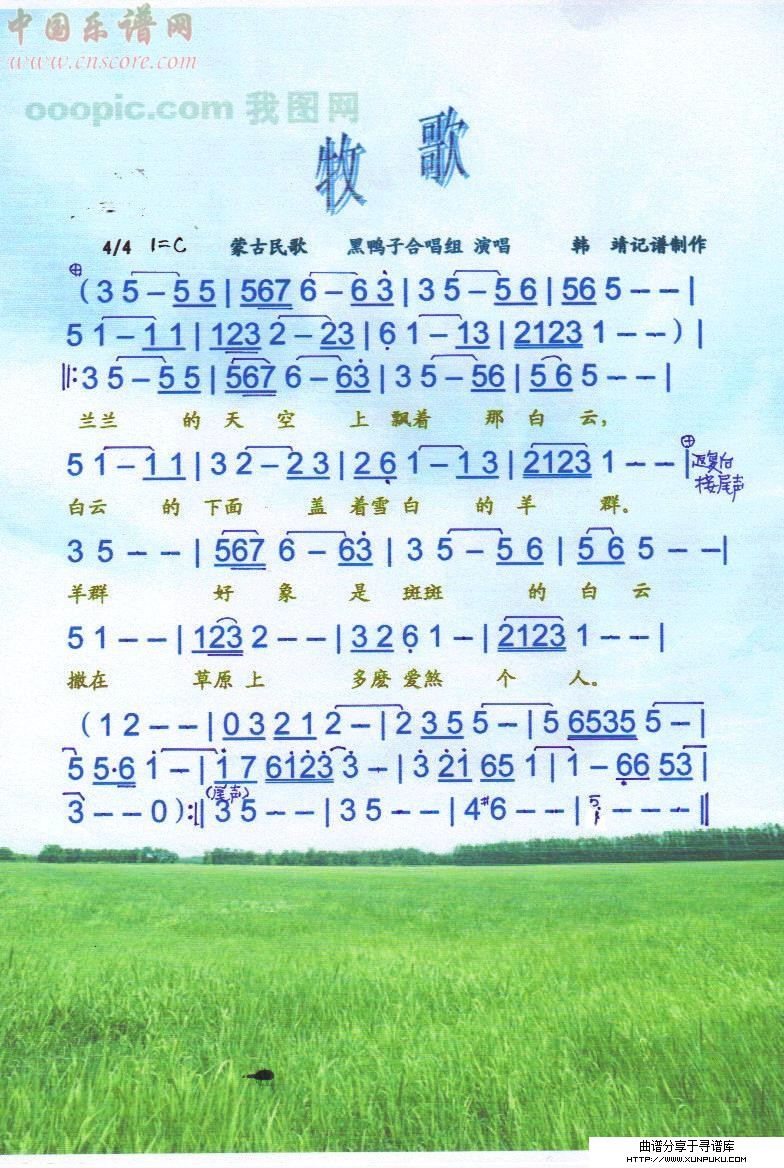 中国乐谱网
www.cnscore.com
ooopic.com 我图网
牧 歌
4/4 1=C 蒙古民歌 黑鸭子合唱组 演唱 韩 靖记谱制作
(3 5 – 5 5 | 567 6 – 6 3 | 3 5 – 5 6 | 56 5 – – |
5 1 – 1 1 | 123 2 – 23 | 6 1 – 13 | 2123 1 – – ) |
‖: 3 5 – 5 5 | 567 6 – 63 | 3 5 – 56 | 5 6 5 – – |
兰兰 的 天 空 上 飘着 那 白 云,
5 1 – 1 1 | 3 2 – 2 3 | 2 6 1 – 1 3 | 2123 1 – – |
接尾声
白云 的 下面 盖 着雪 白 的 羊 群。
3 5 – – | 567 6 – 63 | 3 5 – 5 6 | 5 6 5 – – |
羊群 好 象 是 斑斑 的 白 云
5 1 – – | 123 2 – – | 3 2 6 1 – | 2123 1 – – |
撒在 草原 上 多麽 爱煞 个 人。
(1 2 – – | 0 3 2 1 2 – | 2 3 5 5 – | 5 6535 5 – |
5 5·6 1 – | 1 7 6123 3 – | 3 21 65 1 | 1 – 66 53 |
(尾声)
3 – – 0 ) :‖ 3 5 – – | 3 5 – – | 4 #6 – – | 5 – – – ‖
曲谱分享于寻谱库
HTTP://WWW.XUNPUKU.COM